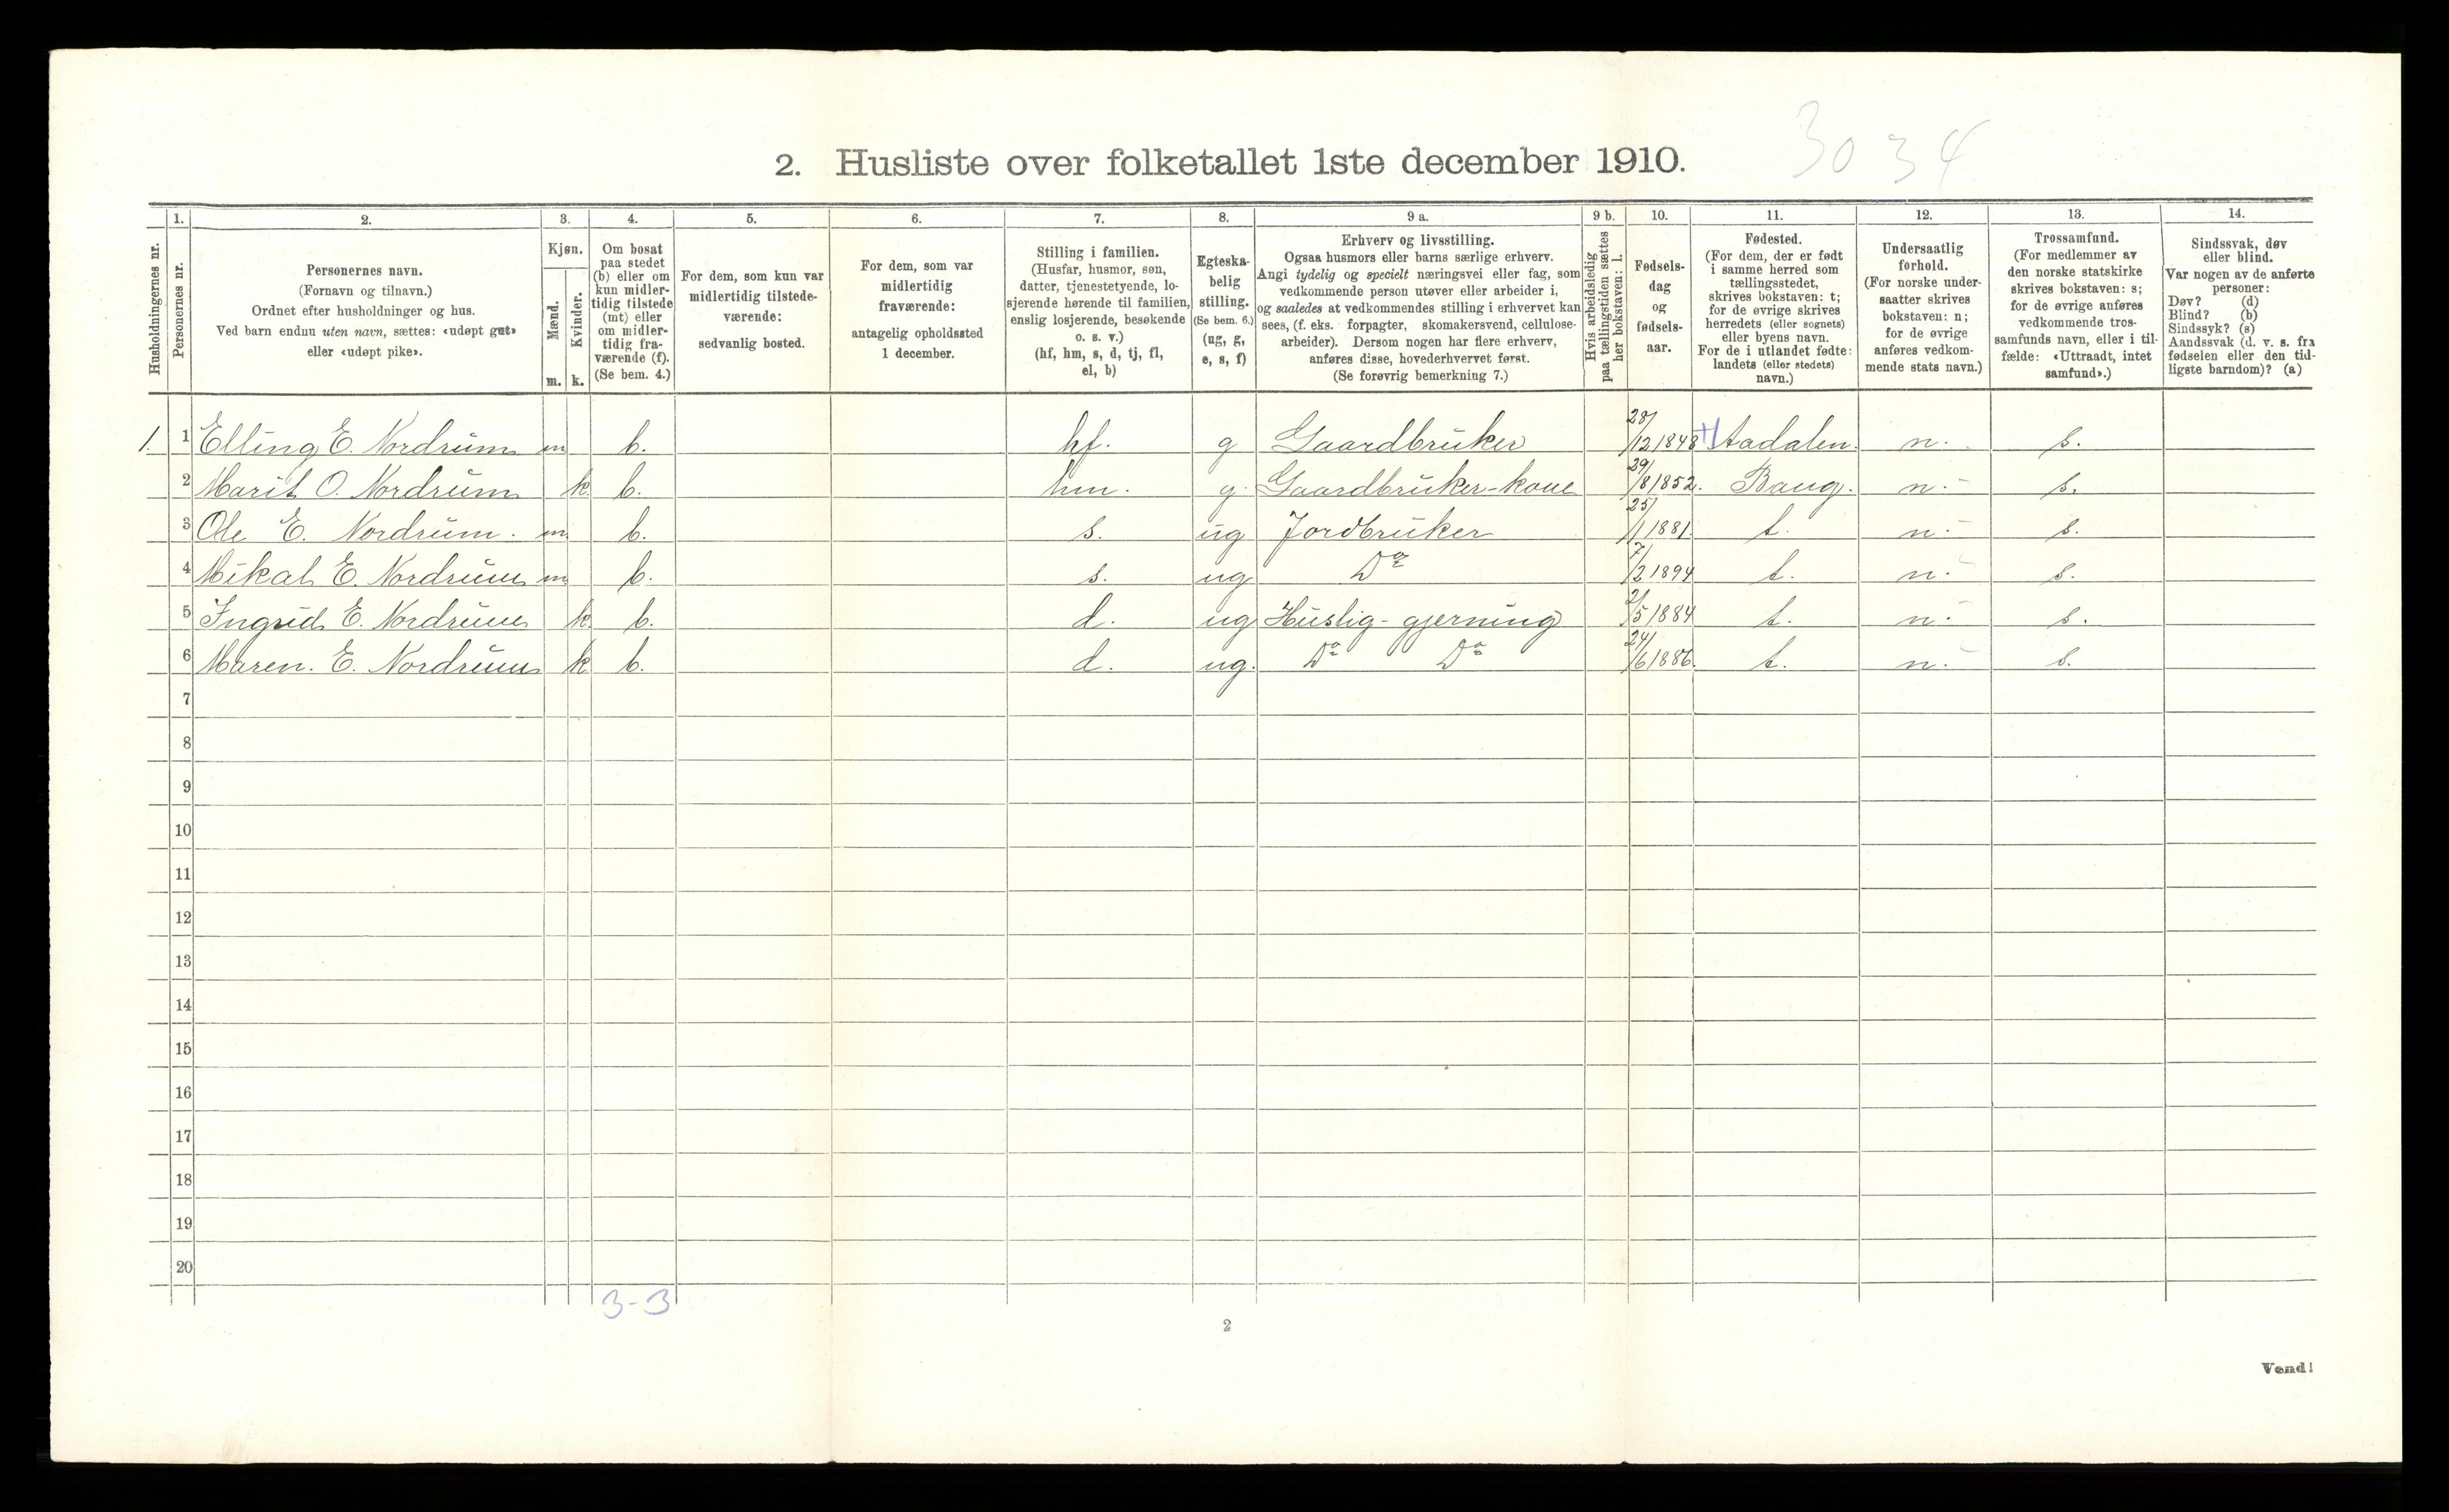 3034
2. Husliste over folketallet 1ste december 1910.
Husholdningernes nr.
1.
Personernes nr.
2.
Personernes navn.
(Fornavn og tilnavn.)
Ordnet efter husholdninger og hus.
Ved barn endnu uten navn, sættes: «udøpt gut»
eller «udøpt pike».
3.
Kjøn.
Mænd.
m.
Kvinder.
k.
4.
Om bosat
paa stedet
(b) eller om
kun midler-
tidig tilstede
(mt) eller
om midler-
tidig fra-
værende (f).
(Se bem. 4.)
5.
For dem, som kun var
midlertidig tilstede-
værende:
sedvanlig bosted.
6.
For dem, som var
midlertidig
fraværende:
antagelig opholdssted
1 december.
7.
Stilling i familien.
(Husfar, husmor, søn,
datter, tjenestetyende, lo-
sjerende hørende til familien,
enslig losjerende, besøkende
o. s. v.)
(hf, hm, s, d, tj, fl,
el, b)
8.
Egteska-
belig
stilling.
(Se bem. 6.)
(ug, g,
e, s, f)
9 a.
Erhverv og livsstilling.
Ogsaa husmors eller barns særlige erhverv.
Angi tydelig og specielt næringsvei eller fag, som
vedkommende person utøver eller arbeider i,
og saaledes at vedkommendes stilling i erhvervet kan
sees, (f. eks. forpagter, skomakersvend, cellulose-
arbeider). Dersom nogen har flere erhverv,
anføres disse, hovederhvervet først.
(Se forøvrig bemerkning 7.)
9 b.
Hvis arbeidsledig
paa tællingstiden sættes
her bokstaven: l.
10.
Fødsels-
dag
og
fødsels-
aar.
11.
Fødested.
(For dem, der er født
i samme herred som
tællingsstedet,
skrives bokstaven: t;
for de øvrige skrives
herredets (eller sognets)
eller byens navn.
For de i utlandet fødte:
landets (eller stedets)
navn.)
12.
Undersaatlig
forhold.
(For norske under-
saatter skrives
bokstaven: n;
for de øvrige
anføres vedkom-
mende stats navn.)
13.
Trossamfund.
(For medlemmer av
den norske statskirke
skrives bokstaven: s;
for de øvrige anføres
vedkommende tros-
samfunds navn, eller i til-
fælde: «Uttraadt, intet
samfund».)
14.
Sindssvak, døv
eller blind.
Var nogen av de anførte
personer:
Døv? (d)
Blind? (b)
Sindssyk? (s)
Aandssvak (d. v. s. fra
fødselen eller den tid-
ligste barndom)? (a)
1. 1 Elling E. Nordrum m b. hf. g Gaardbruker 28/12 1848 Aadalen. n. s.
2 Marit O. Nordrum k. b. hm. g Gaardbruker-kone 29/8 1852. Bang. n. s.
3 Ole E. Nordrum. m. b. s. ug Jordbruker 25/1 1881. t. n. s.
4 Mikal E. Nordrum m b. s. ug Do 7/2 1894 t. n. s.
5 Ingrid E. Nordrum k. b. d. ug Huslig-gjerning 2/5 1884 t. n. s.
6 Maren. E. Nordrum k. b. d. ug. Do Do 24/6 1886. t. n. s.
7
8
9
10
11
12
13
14
15
16
17
18
19
20
3-3
2
Vend!